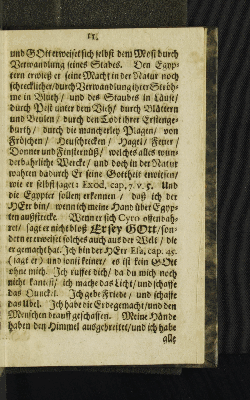 11.
und GOtt erweiset sich selbst dem Mose durch
Verwandlung seines Stabes. Den Egyp-
tern erwieß er seine Macht in der Natur noch
schrecklicher / durch Verwandlung ihrer Ströh-
me in Bluth / und des Staubes in Läuse /
durch Pest unter dem Vieh / durch Blattern
und Beulen / durch den Todt ihrer Erstenge-
burth / durch die mancherley Plagen / von
Fröschen / Heuschrecken / Hagel / Feuer /
Donner und Finsternüß / welches alles wun-
derbahrliche Wercke / und doch in der Natur
wahren dadurch Er seine Gottheit erwiesen /
wie er selbst saget: Exod. cap. 7. v. 5. Und
die Egypter sollen erkennen / daß ich der
HErr bin / wenn ich meine Hand über Egyp-
ten außstrecke. Wenn er sich Cyro offenbah-
ret / sagt er nicht bloß Ersey GOtt / son-
dern er erweiset solches auch aus der Welt / die
er gemacht hat. Ich bin der HErr Esa. cap. 45.
(sagt er) und sonst keiner / es ist kein GOtt
ohne mich. Ich ruffete dich / da du mich noch
nicht kantest / ich mache das Licht / und schaffe
das Dunckel. Ich gebe Friede / und schaffe
das Ubel. Ich habe die Erde gemacht / und den
Menschen drauff geschaffen. Meine Hände
haben den Himmel ausgebreitet / und ich habe
alle